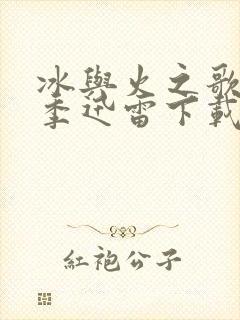 冰與火之歌
季迅雷下載
紅袍公子